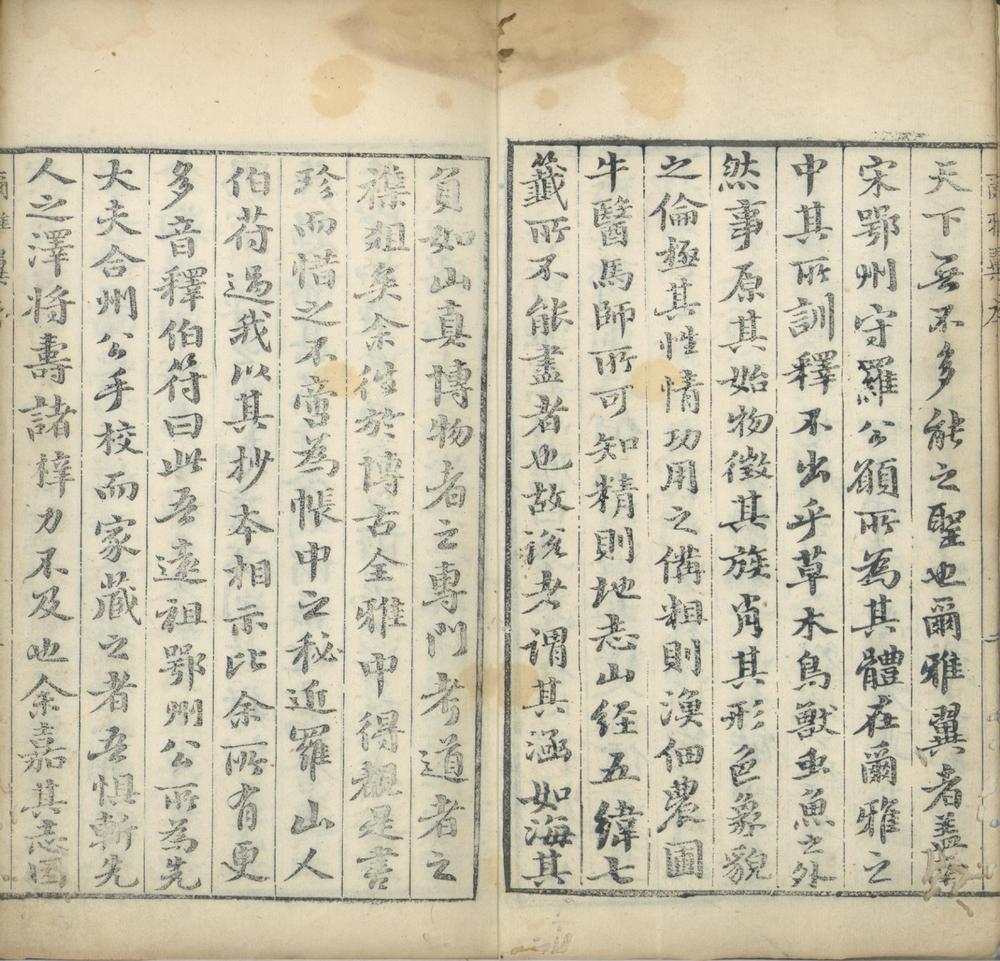 天下無不多能之聖也爾雅翼者蓋
宋鄂州守羅公願所為其體在爾雅之
中其所訓釋不出乎草木鳥獸虫魚之外
然事原其始物徵其族肖其形色象貌
之倫極其性情功用之備粗則漁佃農圃
牛醫馬師所可知精則地志山経五緯七
籤所不能盡者也故該者謂其涵如海其
負如山真博物者之專門考道者之
襟徂矣余性於博古全雅中得觀是書
珍而惜之不啻為帳中之秘近羅山人
伯苻過我以其抄本相示比余所有更
多音釋伯苻曰此吾遠祖鄂州公所為先
大夫合州公手校而家藏之者吾惧斬先
人之澤将壽諸梓力不及也余嘉其志因